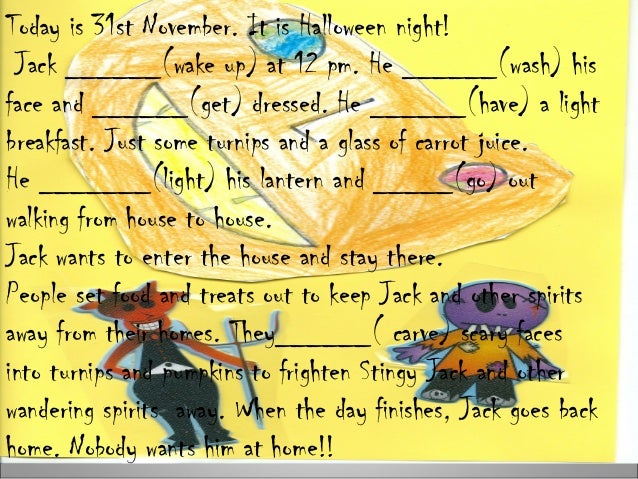 Today is 31st November. It is Halloween night!
Jack ______(wake up) at 12 pm. He ______(wash) his
face and ______(get) dressed. He ______(have) a light
breakfast. Just some turnips and a glass of carrot juice.
He _______(light) his lantern and _____(go) out
walking from house to house.
Jack wants to enter the house and stay there.
People set food and treats out to keep Jack and other spirits
away from their homes. They______( carve) scary faces
into turnips and pumpkins to frighten Stingy Jack and other
wandering spirits away. When the day finishes, Jack goes back
home. Nobody wants him at home!!